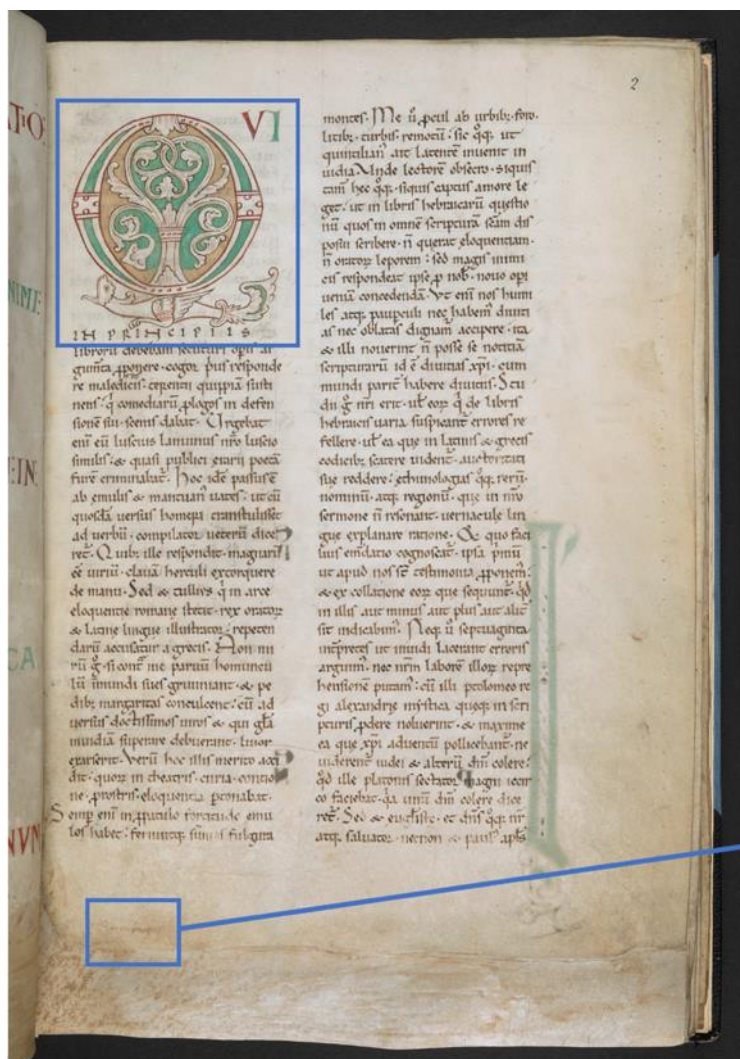 2
VI
IN PRINCIPIIS
librorū debebam secuturi opis ar
gumta ꝓponere· cogor pus responde
re maledictis· terentii quippiā susti
nens· q comediarū ꝓlogos in defen
sionē sui scenis dabat· Urgebat
eni eū luscius lanuinus nrō luscio
similis· & quasi publici erarii poetā
furē criminabat· Hoc idē passus ē
ab emulis & mantuan' uates· ut cū
quosdā uersus homeri transtulisset
ad uerbū· compilator ueterū dice
ret· Quib; ille respondit· magnarū
ēē uiriū· clauā herculi extorquere
de manu· Sed & tullius q in arce
eloquentie romane stetit· rex oratoꝝ
& latine lingue illustrator· repeten
darū accusatur a grecis· Non mi
rū g· si cont me paruū homuncu
lū inmundi sues grunniant· & pe
dib; margaritas conculcent· cū ad
uersus doctissimos uiros & qui glā
inuidiā superare debuerant· liuor
exarserit· Verū hoc illis merito acci
dit· quoꝝ in theatris· curia· contio
ne· ꝓ rostris· eloquentia ptonabat·
Semp eni in ꝓpatulo fortitudo emu
los habet· feriuntq; sūmos fulgura
montes· Me ū ꝓcul ab urbib;· foro·
litib;· turbis remotū· sic qq; ut
quintilian' ait latentē inuenit in
uidia· Unde lectorē obsecro· siquis
tam hec qq;· siquis captus amore le
get· ut in libris hebraicarū questio
nū quos in omnē scripturā scām dis
posui scribere· n querat eloquentiam·
n oratoꝝ leporem· sed magis inimi
cis respondeat ipse ꝓ nob· nouo opi
ueniā concedendā· Vt eni nos humi
les atq; paupculi nec habem' diuiti
as nec oblatas dignam' accipere· ita
& illi nouerint n posse se notitiā
scripturarū id ē diuitias xpi· cum
mundi parit habere diuitiis· Stu
dii g nri erit· ut eoꝝ q de libris
hebraicis uaria suspicant errores re
fellere· ut ea que in latinis & grecis
codicib; scatere uident· auctoritati
sue reddere· ethimologias qq; rerū·
nominū· atq; regionū· que in nrō
sermone n resonant· uernacule lin
gue explanare ratione· Et quo faci
lius emdatio cognoscat· ipsa pmū
ut apud nos st testimonia ꝓponem'·
& ex collatione eoꝝ que sequunt· qd
in illis aut minus aut plus aut alit
sit indicabim'· Neq; ū septuaginta
intpretes ut inuidi lacerant erroris
arguim'· nec nrm laborē illoꝝ repre
hensionē putam'· cū illi ptolomeo re
gi alexandrie mystica queq; in scri
pturis pdere noluerint· & maxime
ea que xpi aduentū pollicebant· ne
uiderent iudei & alterū dm colere·
qd ille platonis sectator magni iccir
co faciebat· qa unū dm colere dice
ret· Sed & euāgliste· et dns qq; nr
atq; saluator· necnon & paul' apls